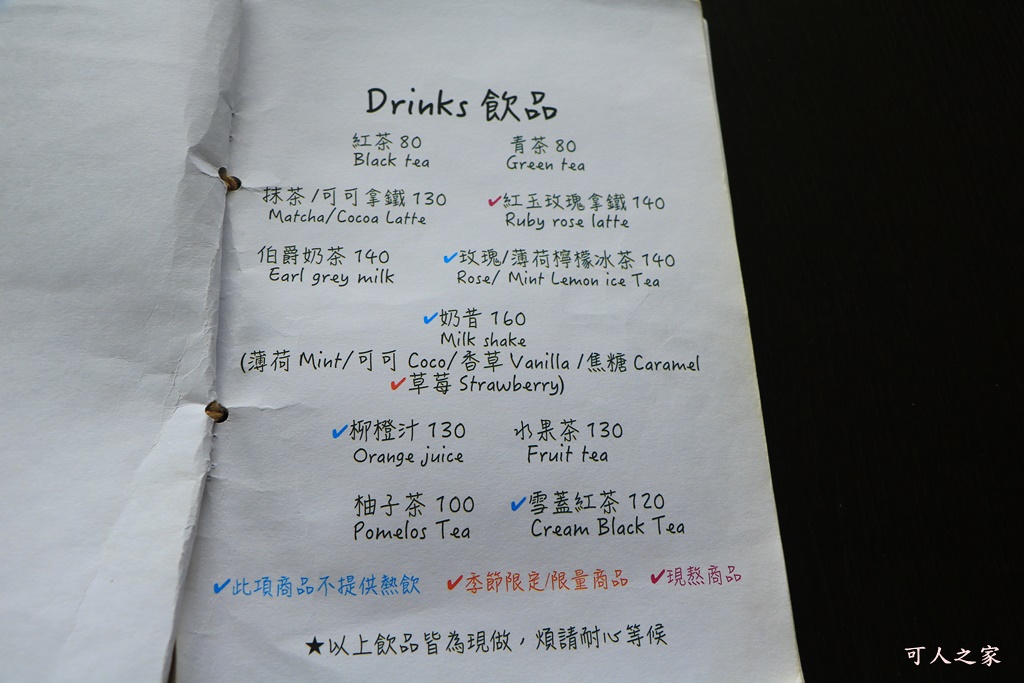 Drinks 飲品
紅茶 80 青茶 80
Black tea Green tea
抹茶/可可拿鐵 130 ✔紅玉玫瑰拿鐵 140
Matcha/Cocoa Latte Ruby rose latte
伯爵奶茶 140 ✔玫瑰/薄荷檸檬冰茶 140
Earl grey milk Rose/ Mint Lemon ice Tea
✔奶昔 160
Milk shake
(薄荷 Mint/可可 Coco/香草 Vanilla /焦糖 Caramel
✔草莓 Strawberry)
✔柳橙汁 130 水果茶 130
Orange juice Fruit tea
柚子茶 100 ✔雪蓋紅茶 120
Pomelos Tea Cream Black Tea
✔此項商品不提供熱飲 ✔季節限定/限量商品 ✔現熬商品
★以上飲品皆為現做，煩請耐心等候
可人之家